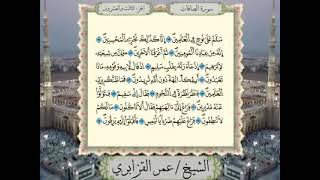 سورة الصافات الجزء الثالث والعشرون
سَلَٰمٌ عَلَىٰ نُوحٍ فِي ٱلْعَٰلَمِينَ إِنَّا كَذَٰلِكَ نَجْزِي ٱلْمُحْسِنِينَ
إِنَّهُۥ مِنْ عِبَادِنَا ٱلْمُؤْمِنِينَ ثُمَّ أَغْرَقْنَا ٱلْءَاخَرِينَ وَإِنَّ مِن شِيعَتِهِۦ
لَإِبْرَٰهِيمَ إِذْ جَآءَ رَبَّهُۥ بِقَلْبٍ سَلِيمٍ إِذْ قَالَ لِأَبِيهِ وَقَوْمِهِۦ مَاذَا
تَعْبُدُونَ أَئِفْكًا ءَالِهَةً دُونَ ٱللَّهِ تُرِيدُونَ فَمَا ظَنُّكُم بِرَبِّ
ٱلْعَٰلَمِينَ فَنَظَرَ نَظْرَةً فِي ٱلنُّجُومِ فَقَالَ إِنِّي سَقِيمٌ فَتَوَلَّوْا۟
عَنْهُ مُدْبِرِينَ فَرَاغَ إِلَىٰٓ ءَالِهَتِهِمْ فَقَالَ أَلَا تَأْكُلُونَ مَا لَكُمْ
لَا تَنطِقُونَ فَرَاغَ عَلَيْهِمْ ضَرْبًۢا بِٱلْيَمِينِ فَأَقْبَلُوٓا۟ إِلَيْهِ يَزِفُّونَ
الشيخ / عمر القزابري